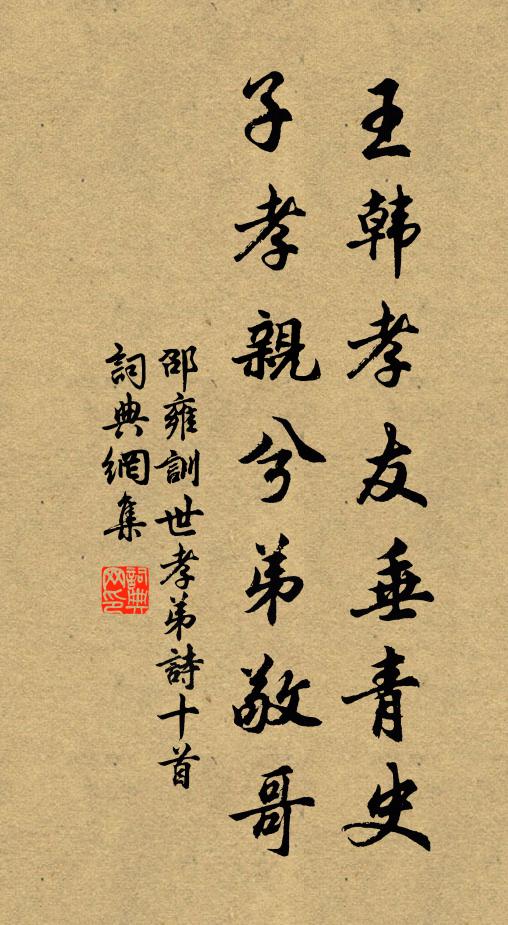 王韩孝友垂青史
子孝親兮弟敬哥
邵雍訓世孝弟詩十首
詞典網集
詞典网印